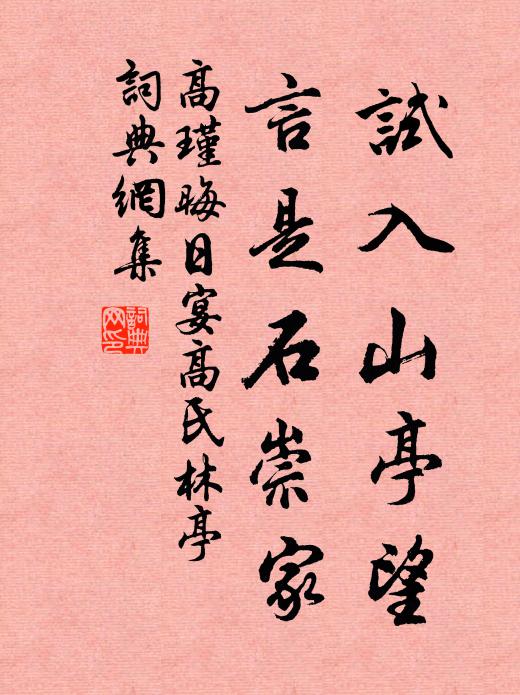 試入山亭望
言是石崇家
高瑾晦日宴高氏林亭
詞典網集
詞典網印